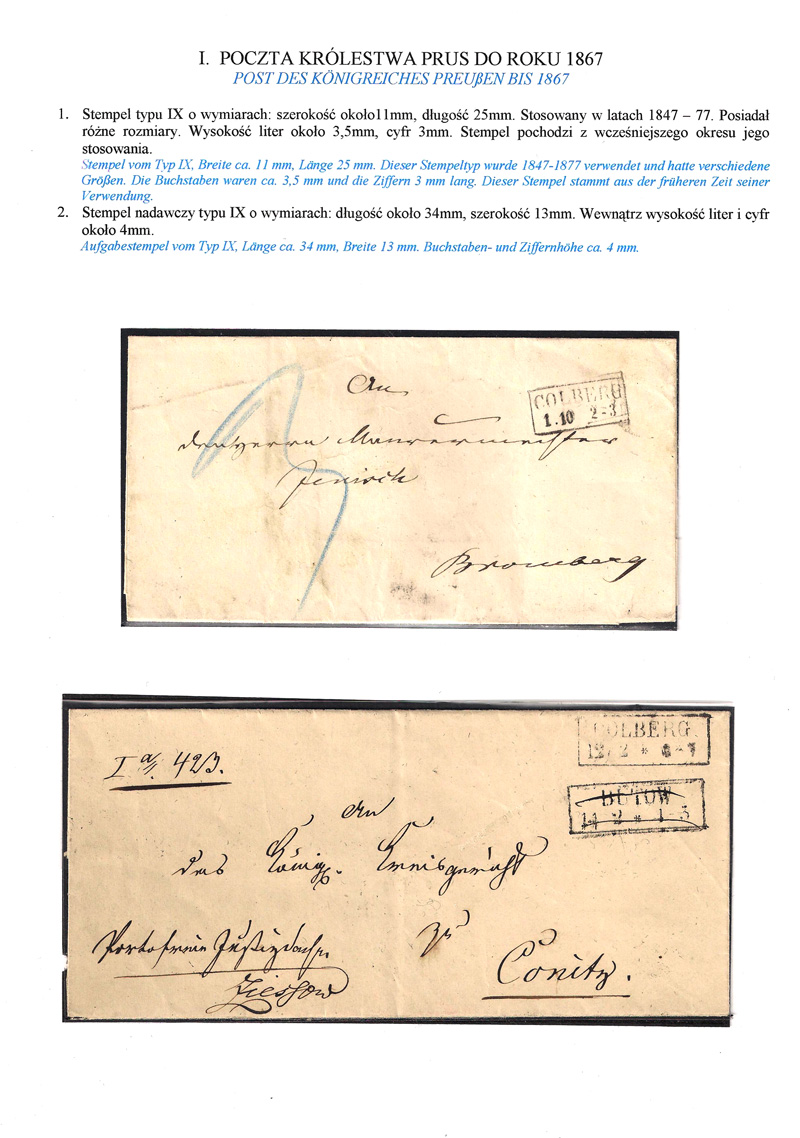 I. POCZTA KRÓLESTWA PRUS DO ROKU 1867
POST DES KÖNIGREICHES PREUßEN BIS 1867
1. Stempel typu IX o wymiarach: szerokość około11mm, długość 25mm. Stosowany w latach 1847 – 77. Posiadał
różne rozmiary. Wysokość liter około 3,5mm, cyfr 3mm. Stempel pochodzi z wcześniejszego okresu jego
stosowania.
Stempel vom Typ IX, Breite ca. 11 mm, Länge 25 mm. Dieser Stempeltyp wurde 1847-1877 verwendet und hatte verschiedene
Größen. Die Buchstaben waren ca. 3,5 mm und die Ziffern 3 mm lang. Dieser Stempel stammt aus der früheren Zeit seiner
Verwendung.
2. Stempel nadawczy typu IX o wymiarach: długość około 34mm, szerokość 13mm. Wewnątrz wysokość liter i cyfr
około 4mm.
Aufgabestempel vom Typ IX, Länge ca. 34 mm, Breite 13 mm. Buchstaben- und Ziffernhöhe ca. 4 mm.
An
COLBERG
1.10 2-3
den Herrn Maurermeister
Jenisch
Bromberg
COLBERG
12 2 * 6-7
I a/ 423.
BÜTOW
14 2 * 1-3
An
das Königl. Kreisgericht
zu
Portofreie Justizsache.
Conitz.